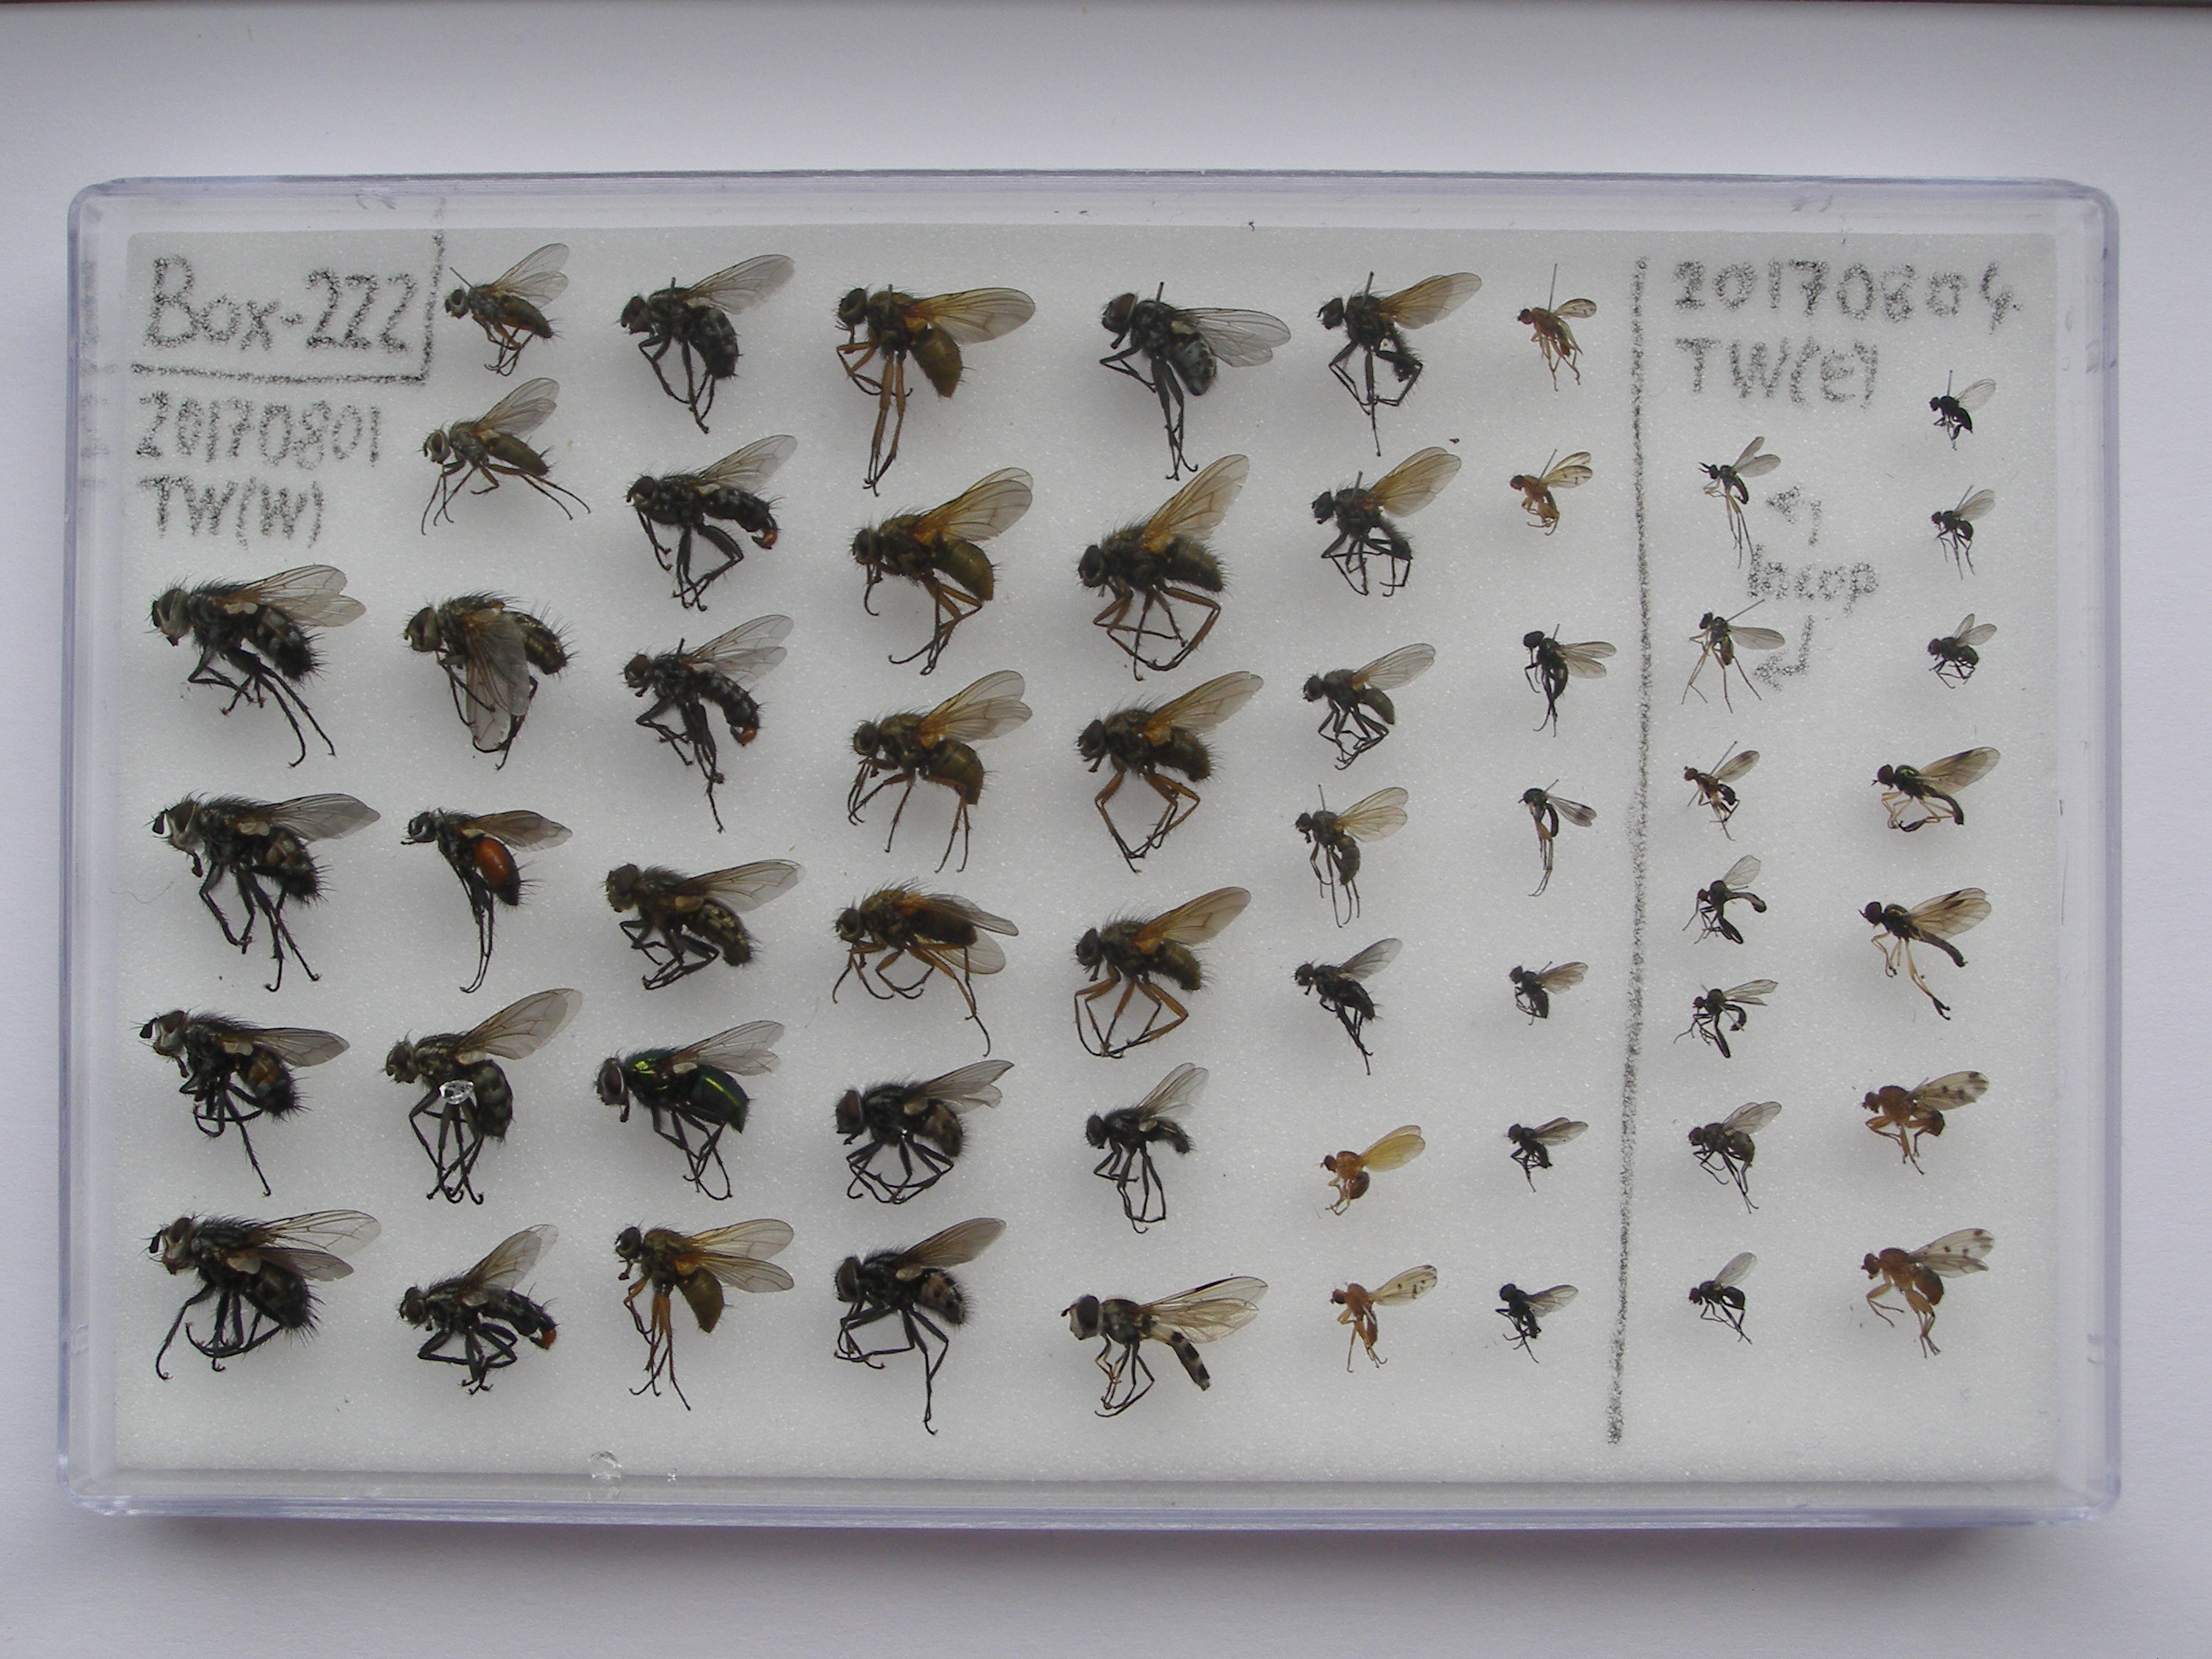 Box-222
20170801
TW(W)
20170804
TW(E)